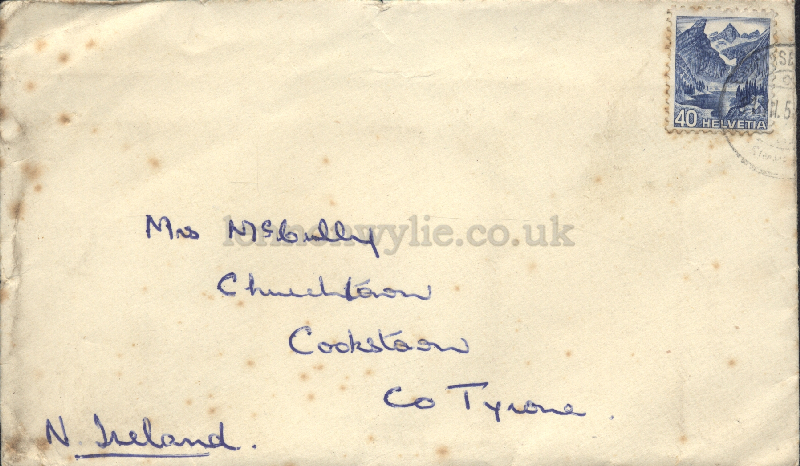 40 HELVETIA
Mrs McCully
lennonwylie.co.uk
Churchtown
Cookstown
Co Tyrone.
N. Ireland.